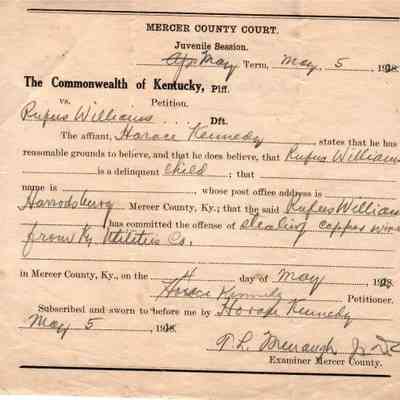 MERCER COUNTY COURT.
Juvenile Session.
May Term, May 5
The Commonwealth of Kentucky, Plf.
vs. Petition.
Rufus Williams .... Dft.
The affiant, Horace Kennedy, states that he has
reasonable grounds to believe, and that he does believe, that Rufus Williams
is a delinquent child; that
name is, whose post office address is
Harrodsburg Mercer County, Ky.; that the said Rufus William
has committed the offense of stealing copper wire
from Ky Utilities Co.
in Mercer County, Ky., on the 4 day of May
Horace Kennedy Petitioner.
Subscribed and sworn to before me by Horace Kennedy
May 5
Examiner Mercer County.